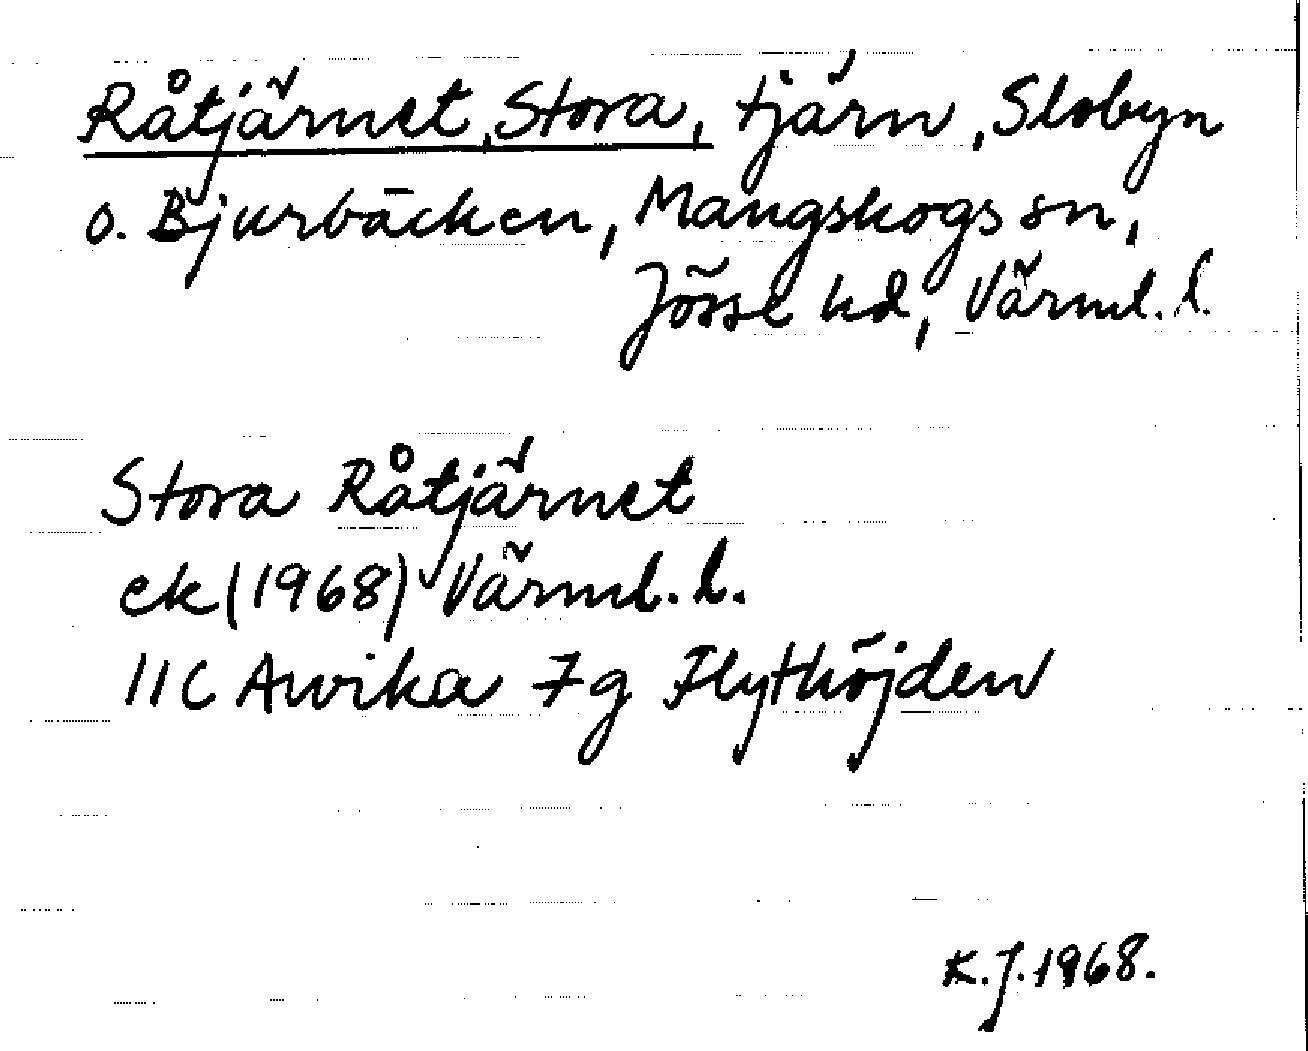 Råtjärnet, Stora, tjärn, Slobyn
o. Bjurbäcken, Mangskogs sn,
Jösse hd, Värml. l.
Stora Råtjärnet
ek (1968) Värml. l.
11C Arvika 7g Flytthöjden
K.J. 1968.